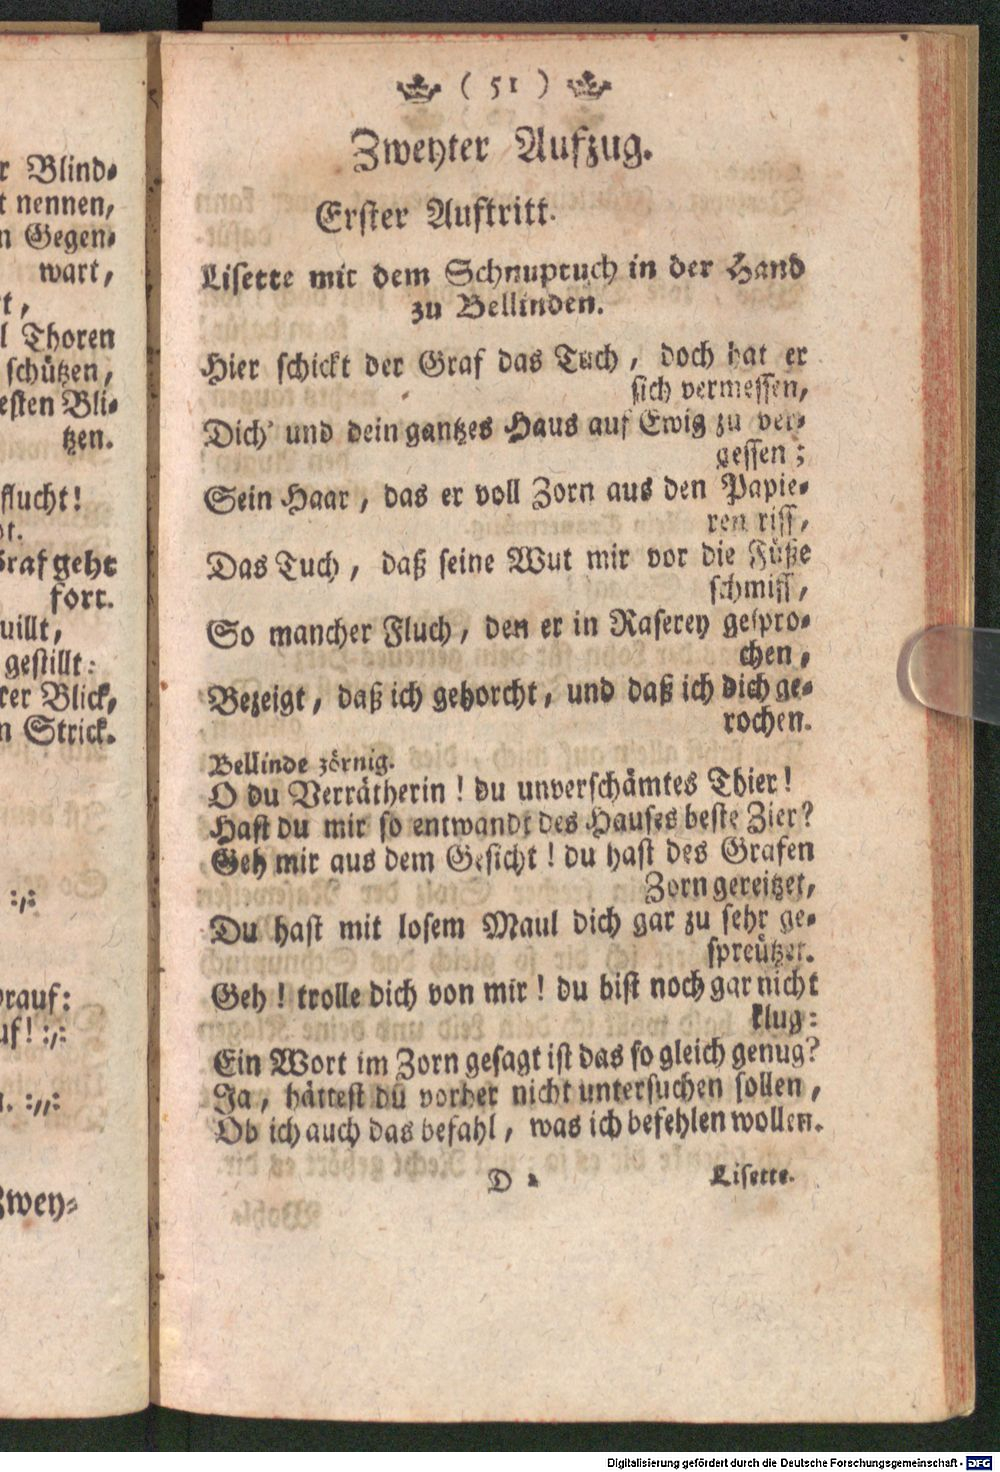 r Blind⸗
t nennen,
n Gegen⸗
wart,
t,
l Thoren
schützen,
esten Bli⸗
tzen.
flucht!
ot.
Graf geht
fort.
uillt,
gestillt:
rer Blick,
n Strick.
:,:
rauf:
uf! :,:
. :,,:
Zwey⸗
( 51 )
Zweyter Aufzug.
Erster Auftritt.
Lisette mit dem Schnuptuch in der Hand
zu Bellinden.
Hier schickt der Graf das Tuch, doch hat er
sich vermessen,
Dich und dein gantzes Haus auf Ewig zu ver⸗
gessen;
Sein Haar, das er voll Zorn aus den Papie⸗
ren riss,
Das Tuch, daß seine Wut mir vor die Füße
schmiss,
So mancher Fluch, den er in Raserey gespro⸗
chen,
Bezeigt, daß ich gehorcht, und daß ich dich ge⸗
rochen.
Bellinde zörnig.
O du Verrätherin! du unverschämtes Thier!
Hast du mir so entwandt des Hauses beste Zier?
Geh mir aus dem Gesicht! du hast des Grafen
Zorn gereitzet,
Du hast mit losem Maul dich gar zu sehr ge⸗
spreützet.
Geh! trolle dich von mir! du bist noch gar nicht
klug:
Ein Wort im Zorn gesagt ist das so gleich genug?
Ja, hättest du vorher nicht untersuchen sollen,
Ob ich auch das befahl, was ich befehlen wollen.
D 2 Lisette.
Digitalisierung gefördert durch die Deutsche Forschungsgemeinschaft - DFG